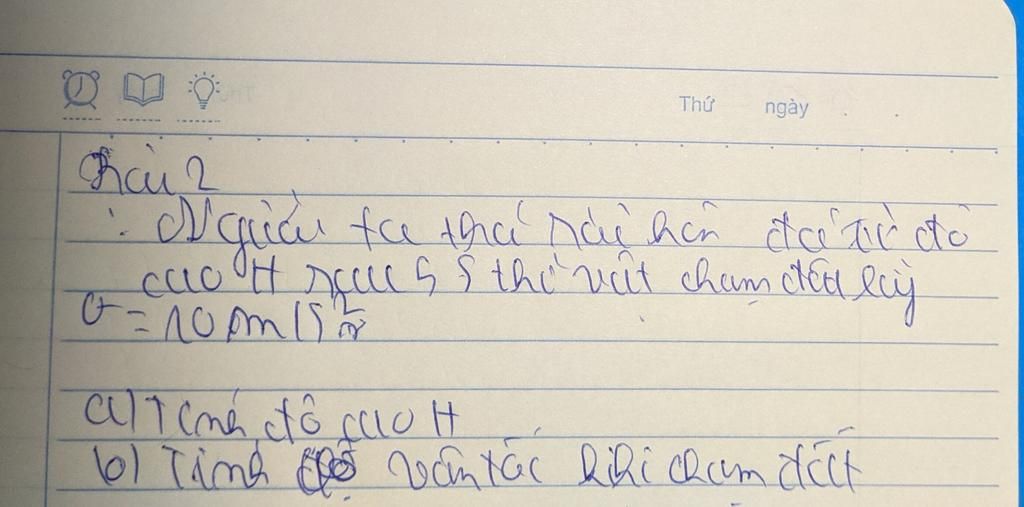 Thứ ngày
Bài 2
: Người ta thả rơi hòn đá từ độ
cao H sau 5 s thì vật chạm đất lấy
= 10 m/s²
a) Tính độ cao H
b) Tính vận tốc khi chạm đất